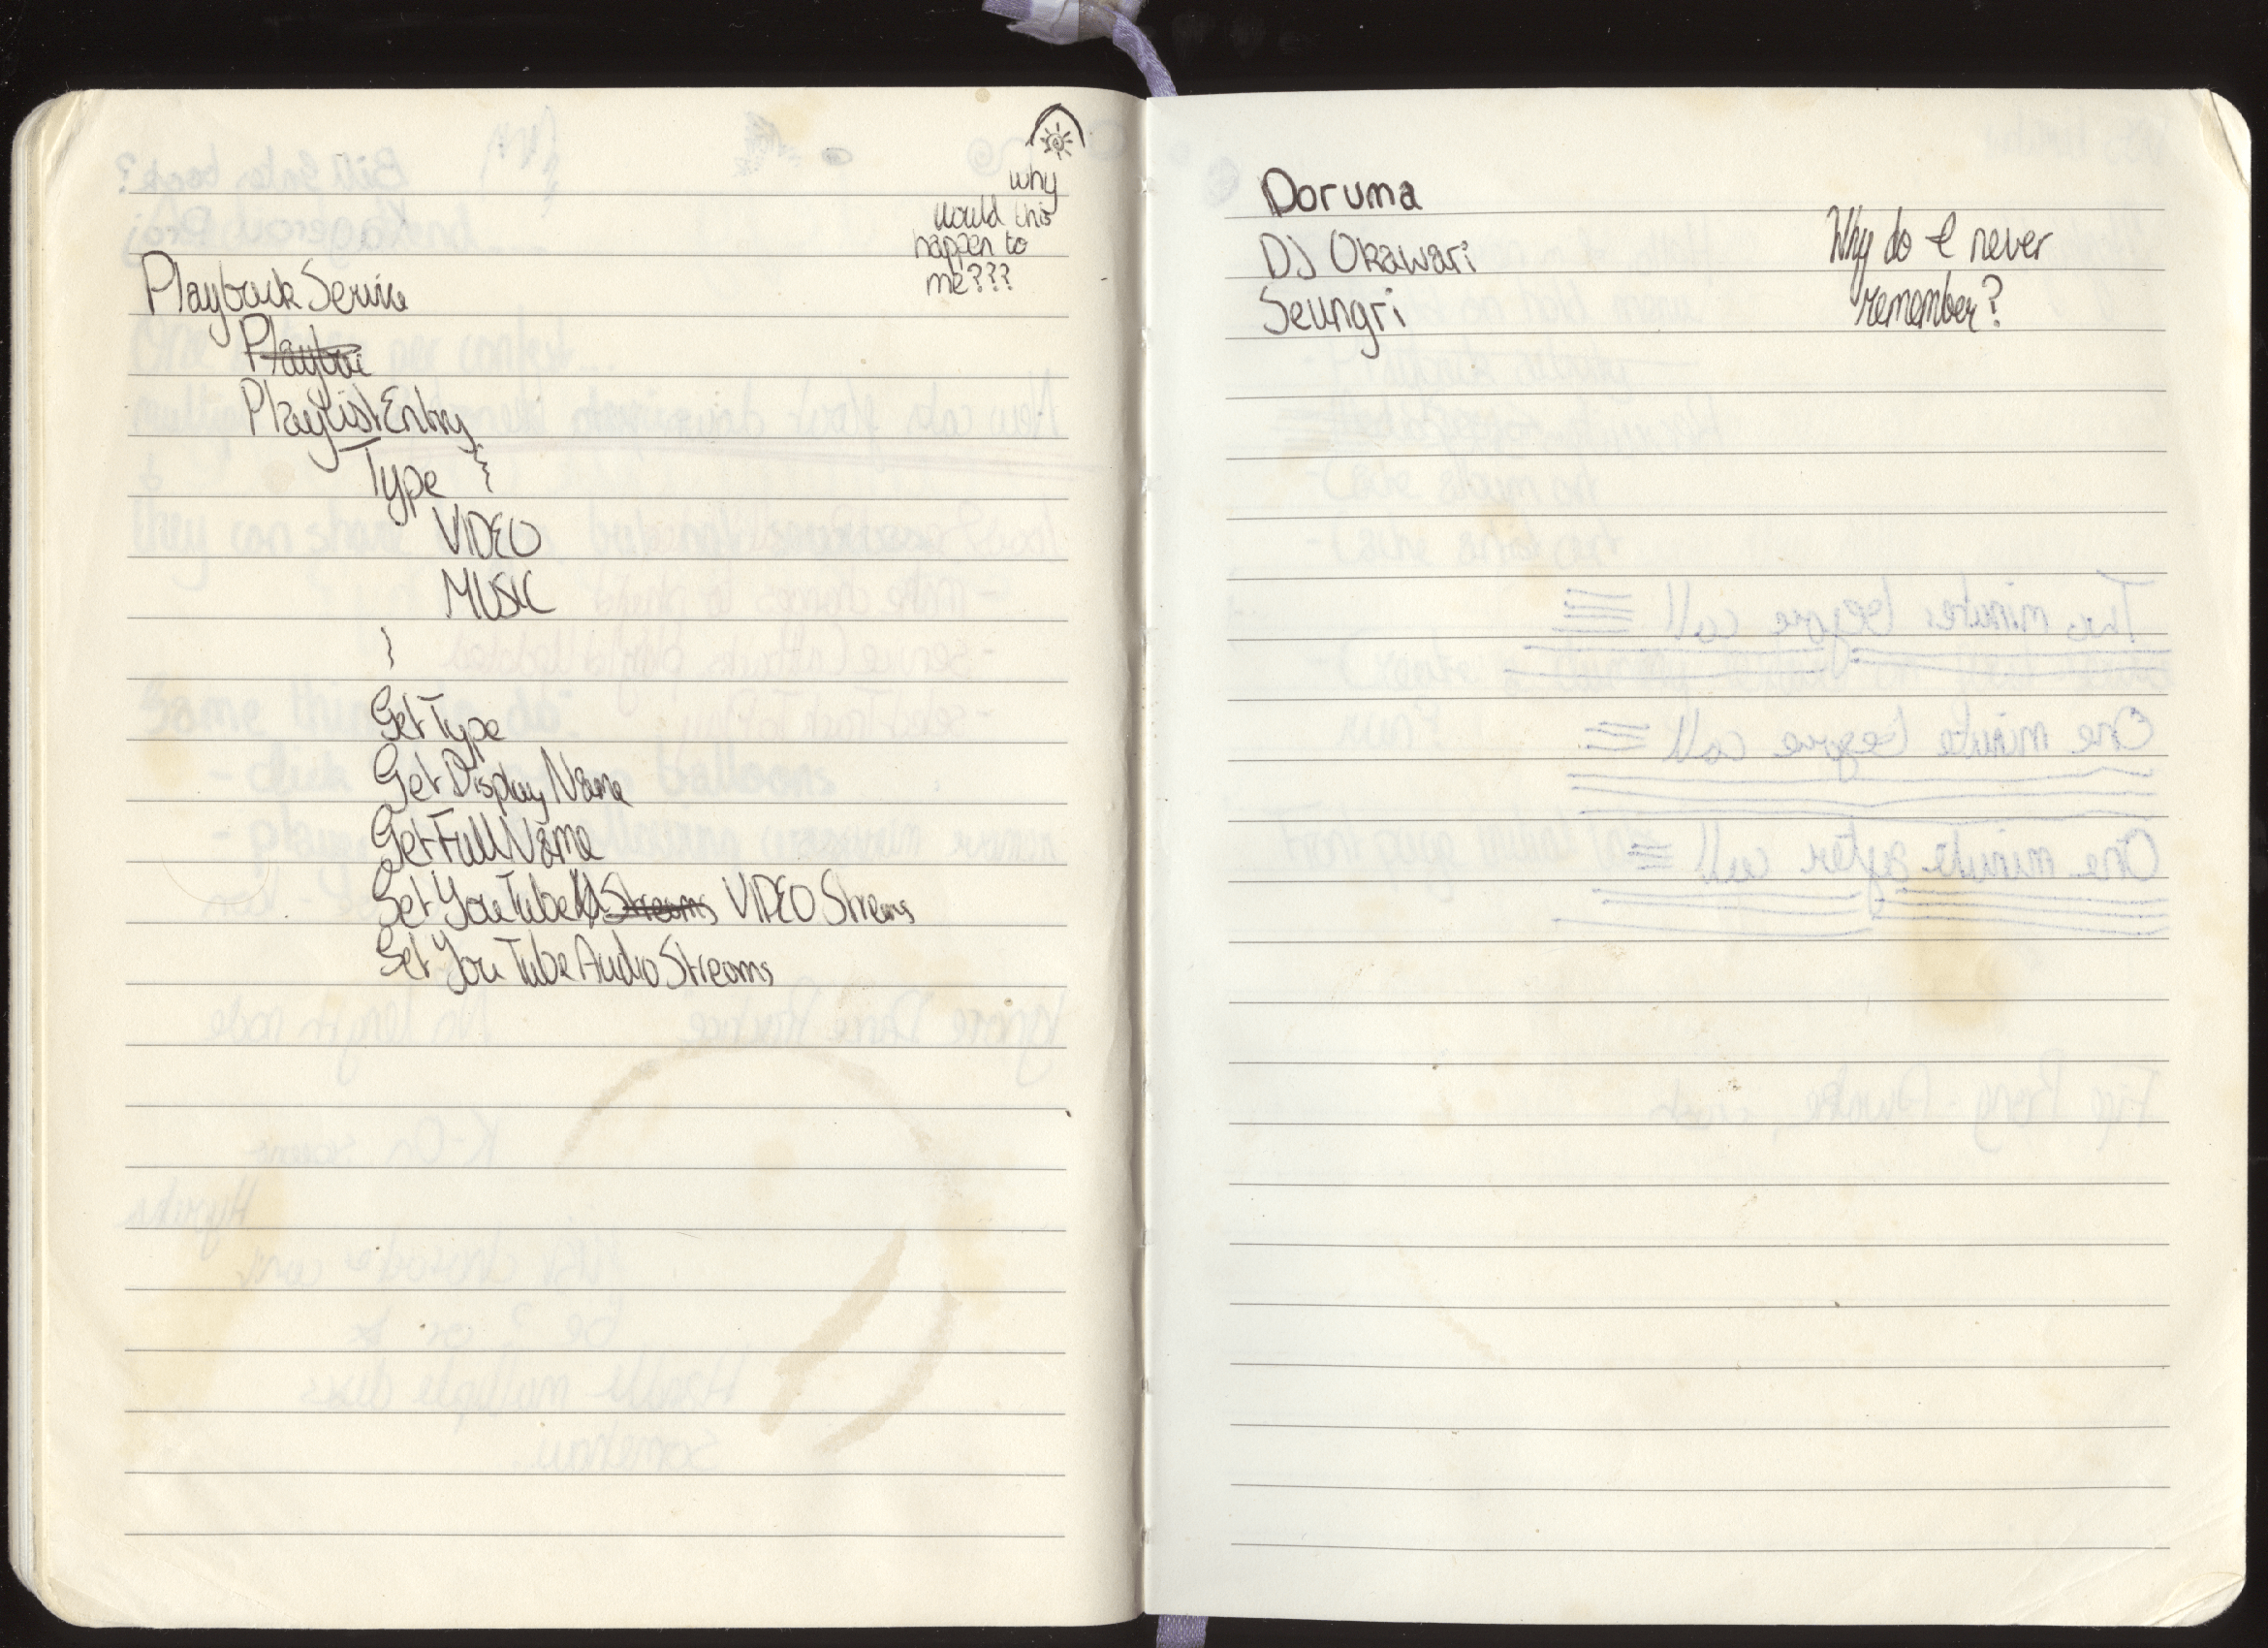 why
would this
happen to
me???
PlaybackService
Playbac
PlaylistEntry
Type {
VIDEO
MUSIC
}
GetType
GetDisplayName
GetFullName
GetYouTube Streams VIDEO Streams
GetYouTubeAudioStreams
Doruma
DJ Okawari
Seungri
Why do I never
remember?